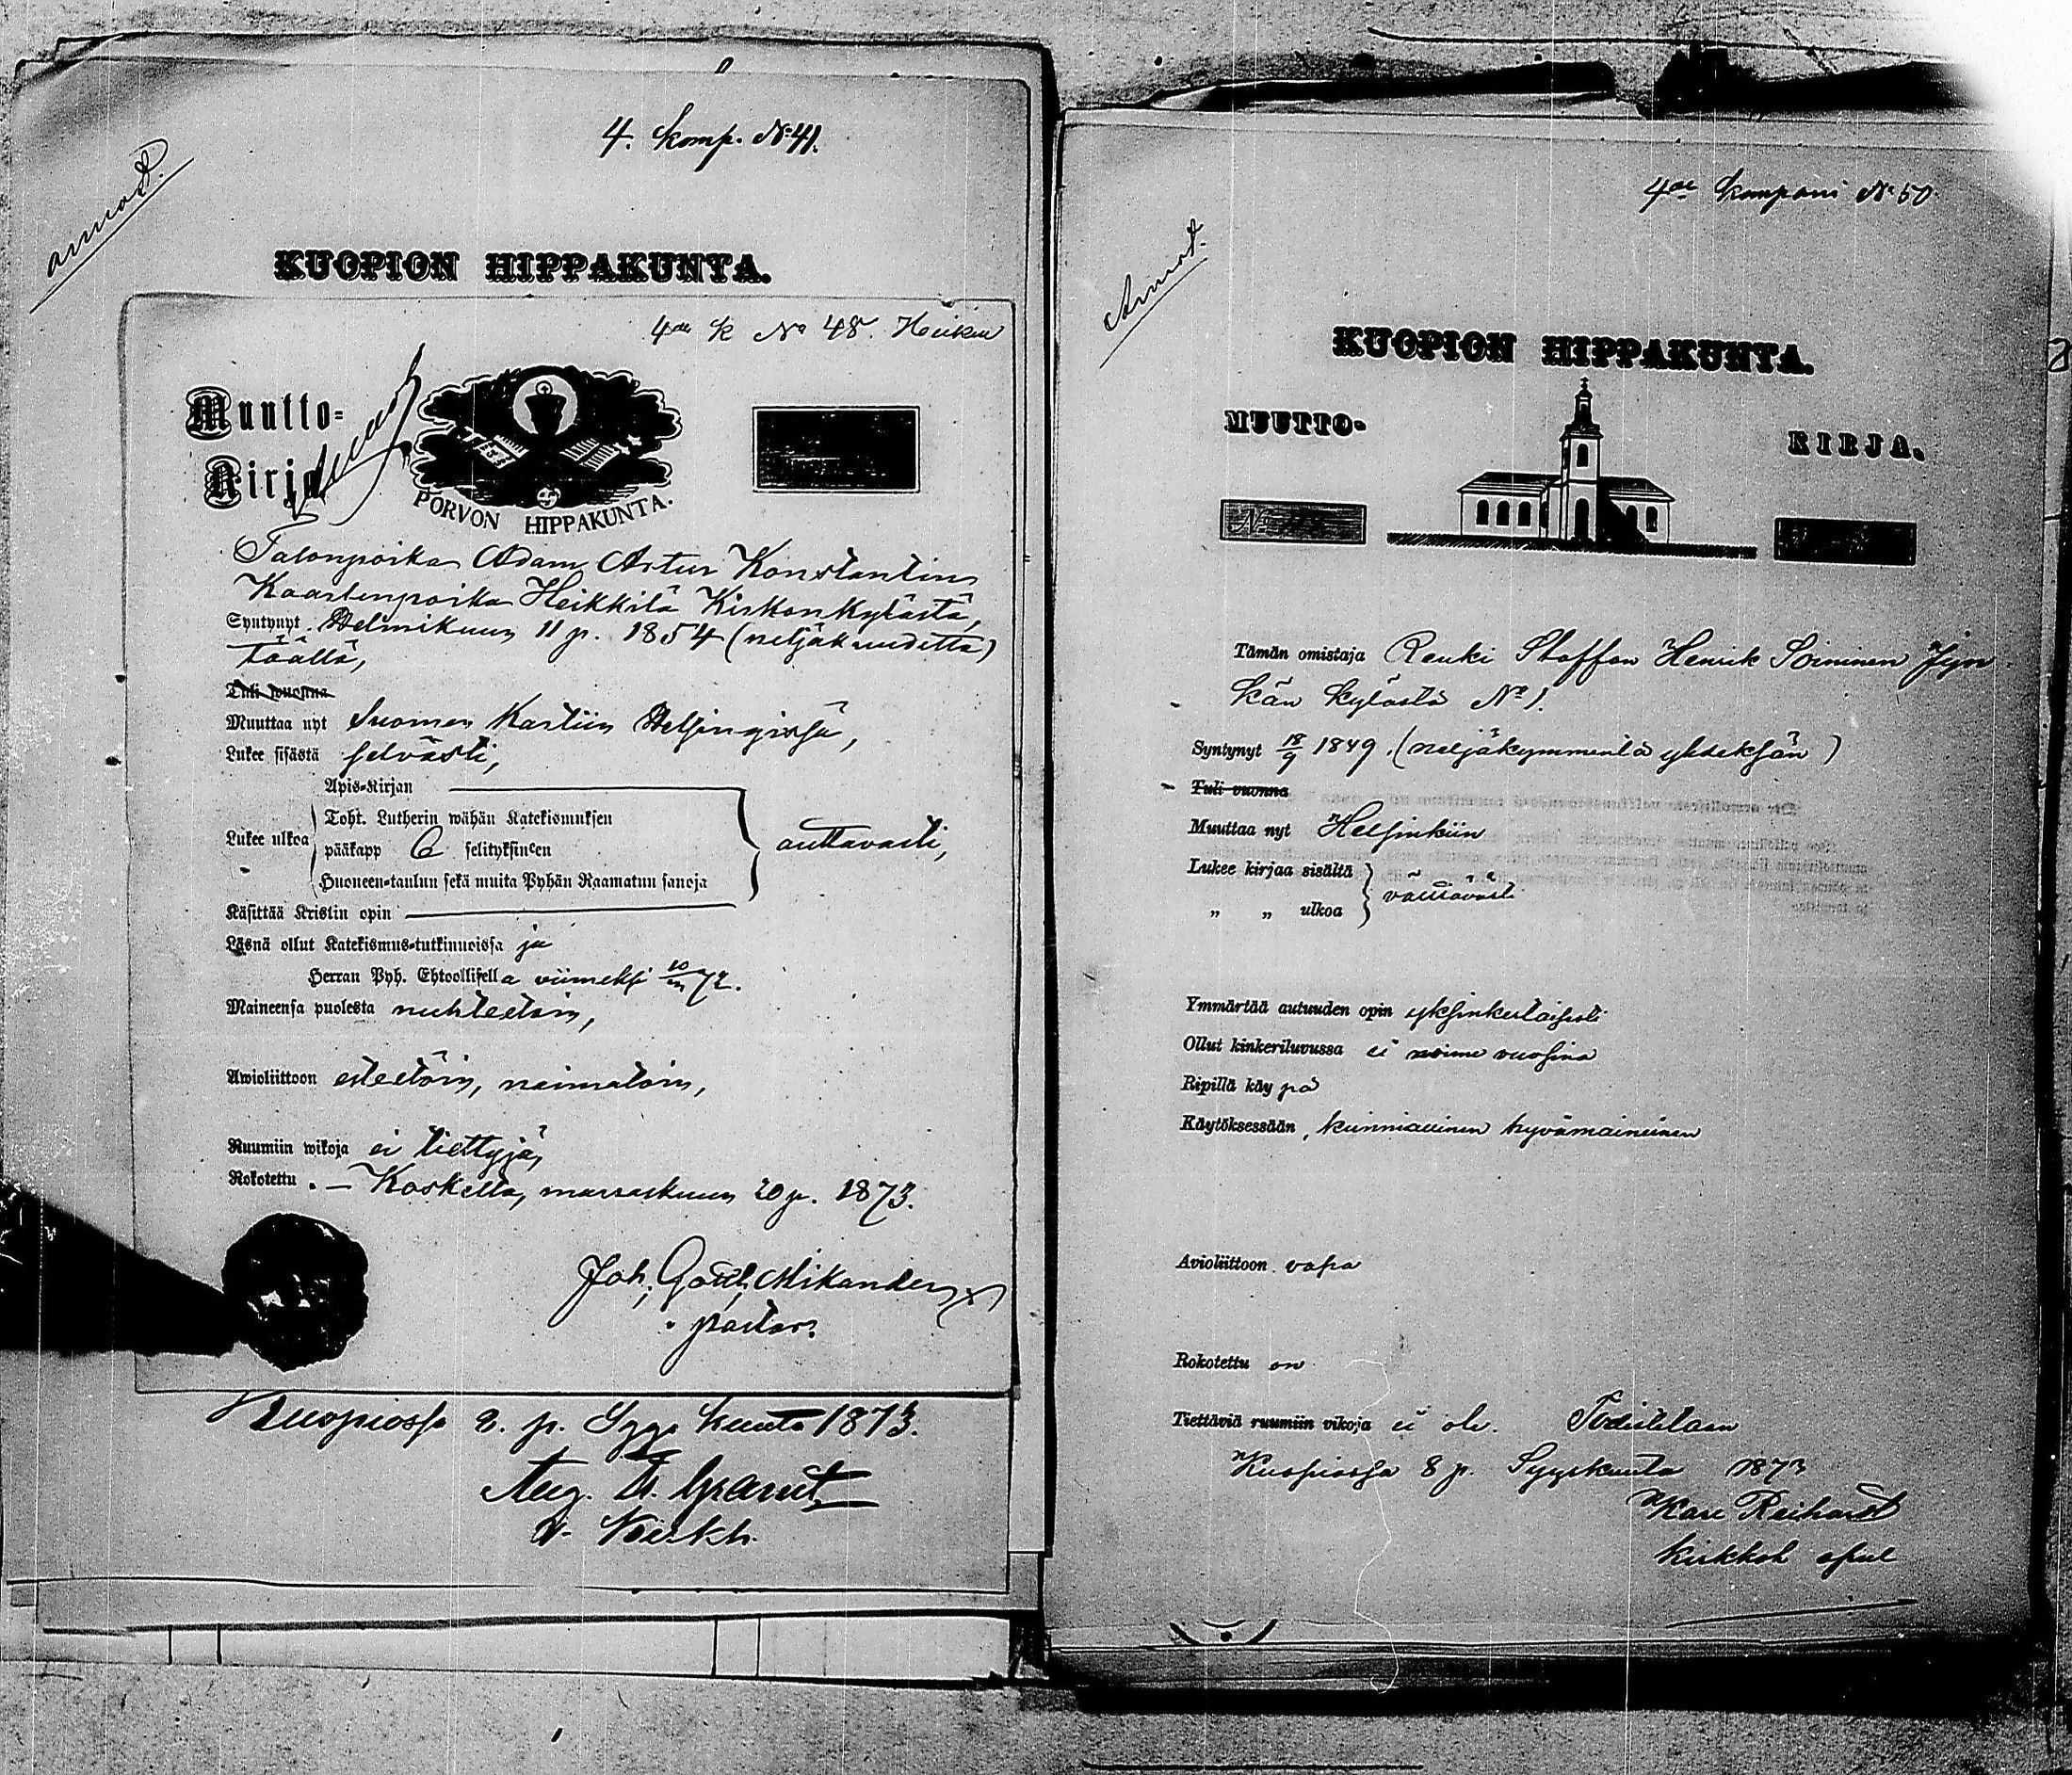 4. komp. N:41.
KUOPION HIPPAKUNTA.
4de k No 48. Heikew
Muutto-
Kirja
PORVON HIPPAKUNTA.
Talonpoika Adam Artur Konstantin
Kaarlenpoika Heikkilä Kirkonkylästä,
Syntynyt Helmikuun 11 p. 1854 (neljäkuudetta)
täällä,
Tuli vuonna
Muuttaa nyt Suomen Kaartiin Helsingissä,
Lukee sisästä selvästi,
Apis-Kirjan
Toht. Lutherin wähän Katekismuksen
Lukee ulkoa
pääkapp 6 selityksineen
auttavasti,
Huoneen-taulun sekä muita Pyhän Raamatun sanoja
Käsittää Kristin opin
Läsnä ollut Katekismus-tutkinnoissa ja
Herran Pyh. Ehtoollisella viimeksi 72.
Maineensa puolesta nuhteetoin,
Awioliittoon esteetöin, naimatoin,
Ruumiin wikoja ei tiettyjä,
Rokotettu. — Koskella, marraskuun 20 p. 1873.
Joh. Gottl. Mikander
pastor.
Kuopiossa 8. p. Syys kuuta 1873.
Aug. G. Granit
v. Kirkh.
4de kompani No 50.
KUOPION HIPPAKUNTA.
MUUTTO-
KIRJA.
No
Tämän omistaja Renki Staffan Henrik Soininen Jyn
kän kylästä No 1.
Syntynyt 18/9 1849. (neljäkymmentä yhdeksän)
Tuli vuonna
Muuttaa nyt Helsinkiin
Lukee kirjaa sisältä
välttävästi
„ „ ulkoa
Ymmärtää autuuden opin yksinkertaisesti
Ollut kinkeriluvussa ei viime vuosina
Ripillä käy pä
Käytöksessään, kunniallinen hyvämaineinen
Avioliittoon vapa
Rokotettu on
Tiettäviä ruumiin vikoja ei ole. Todistetaan
Kuopiossa 8 p. Syyskuuta 1873
Kare Reihard
kirkkoh apul